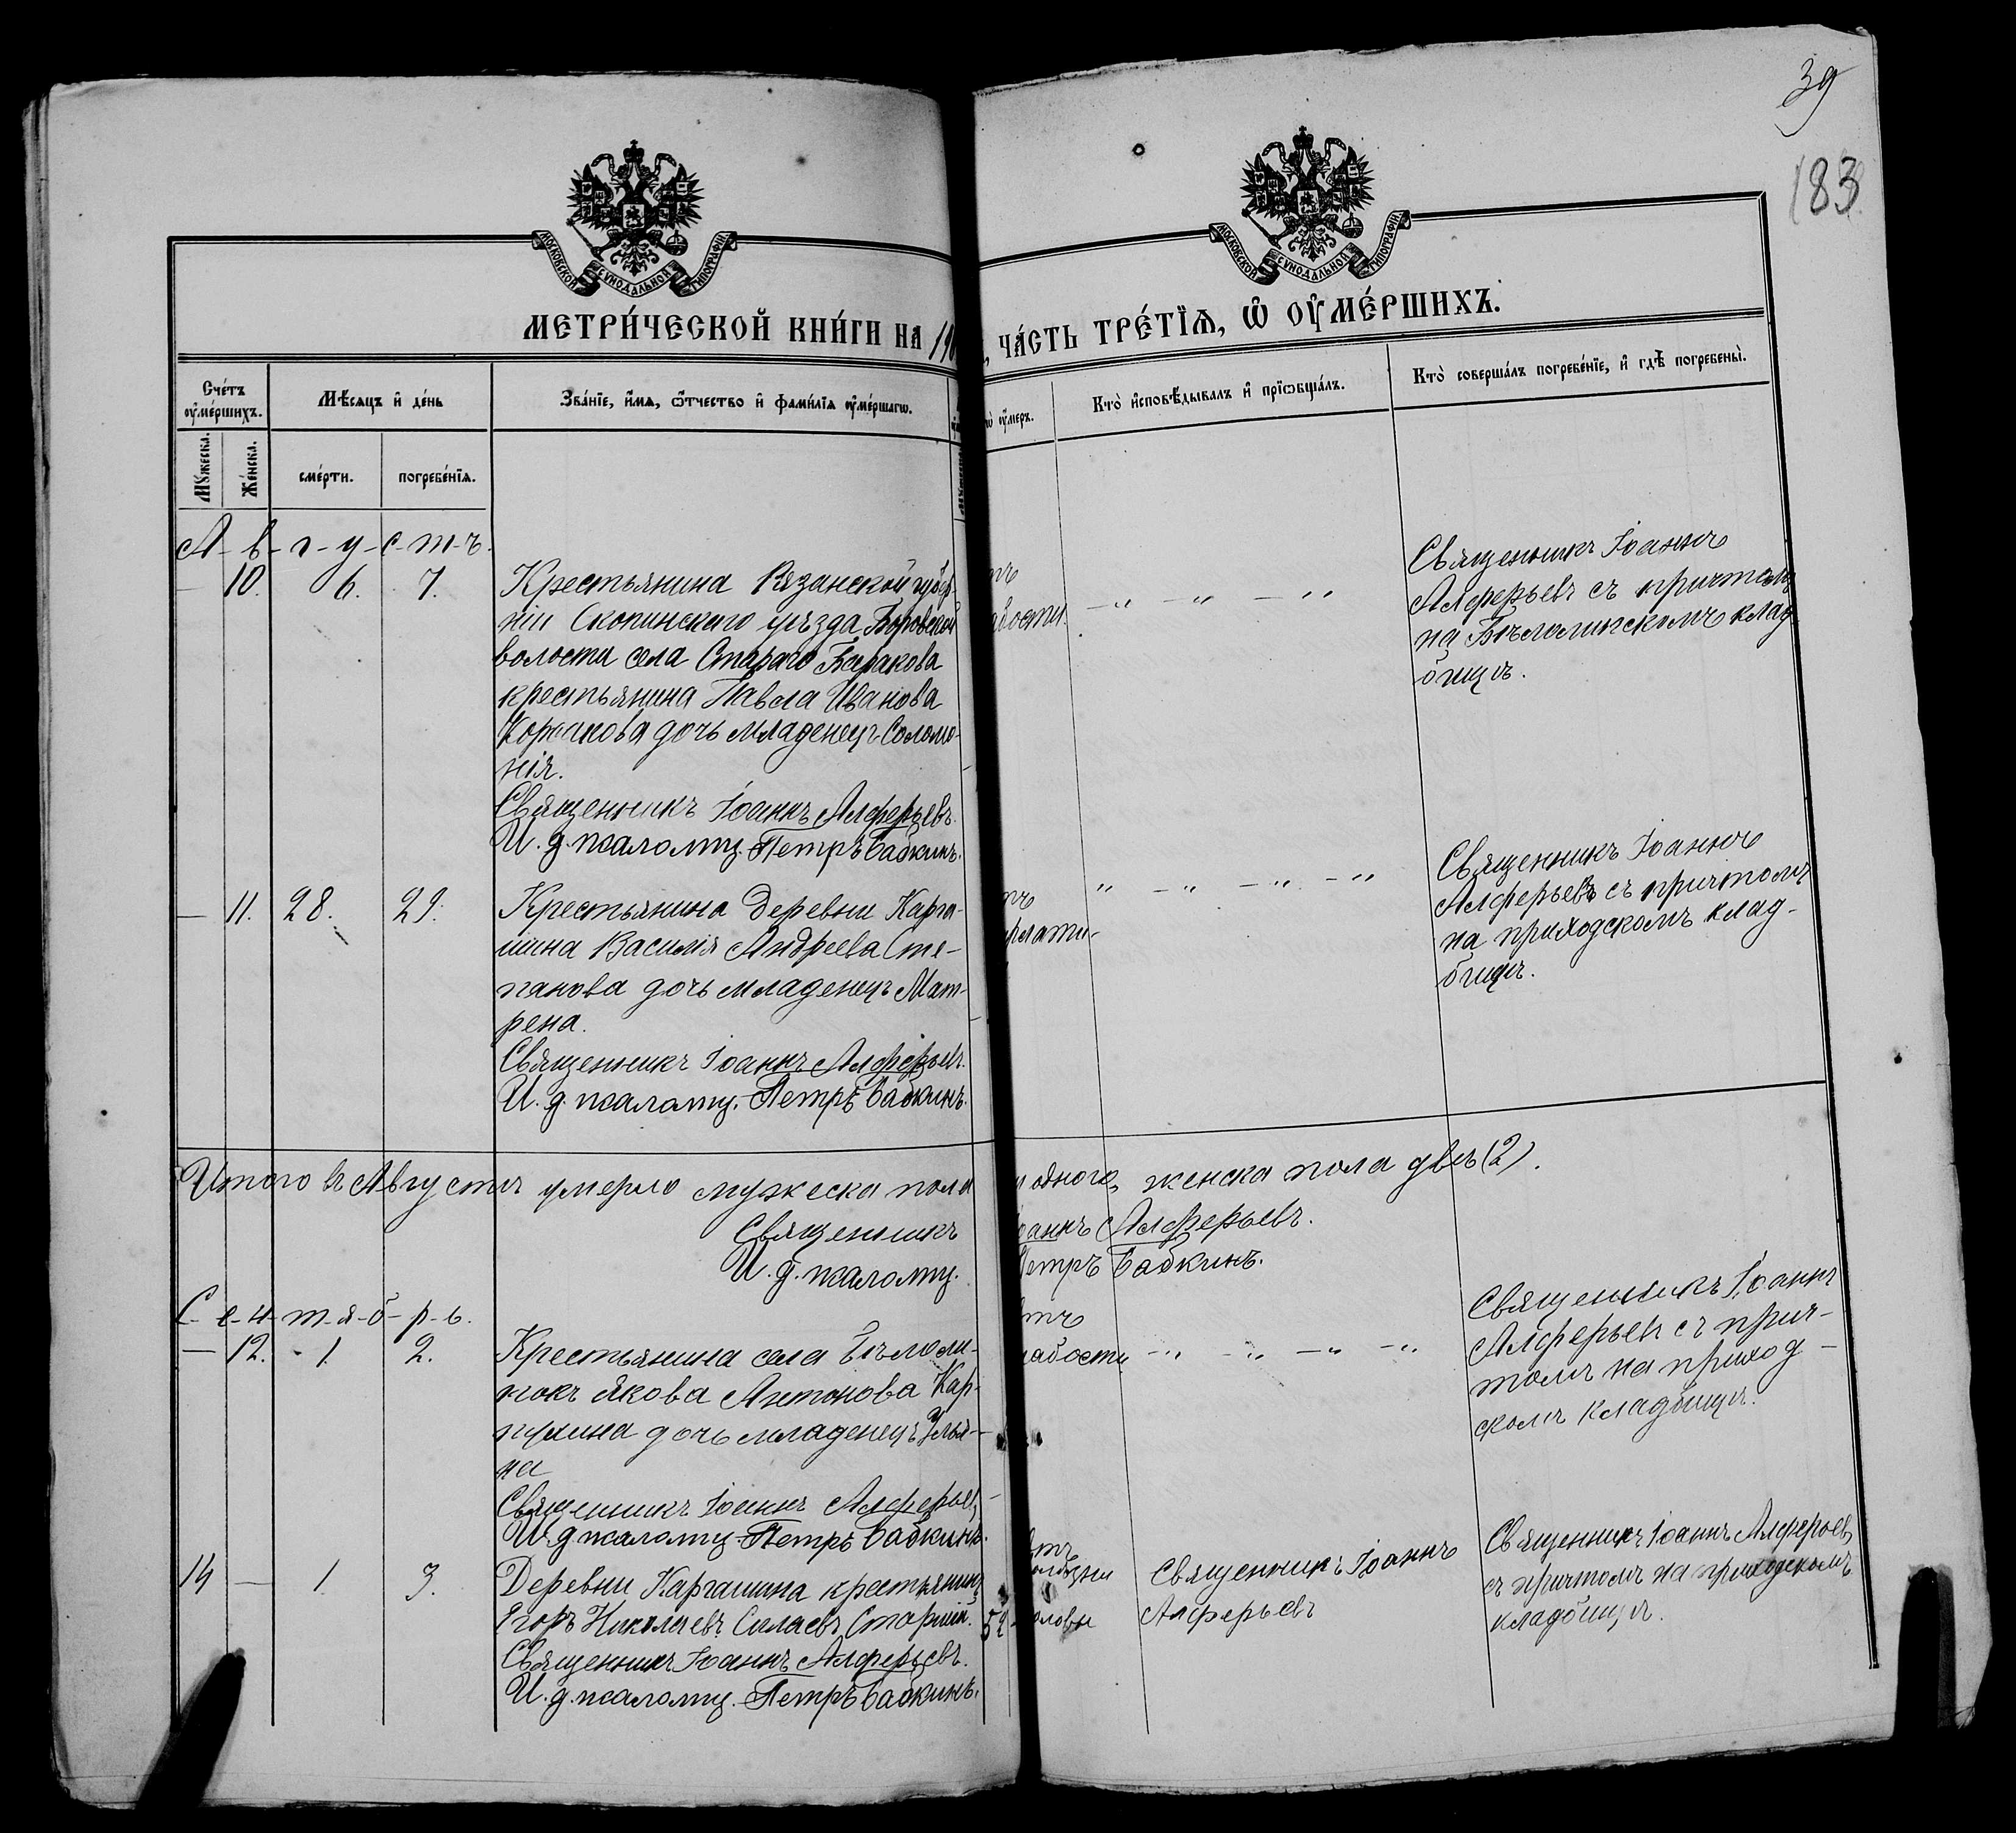 39
183
МОСКОВСКОЙ СУНОДАЛЬНОЙ ТИПОГРАФІИ
МОСКОВСКОЙ СУНОДАЛЬНОЙ ТИПОГРАФІИ
МЕТРИ́ЧЕСКОЙ КНИ́ГИ НА 19
, ЧА́СТЬ ТРЕ́ТЇѦ, Ѡ ОУ҆МЕ́РШИХЪ.
Сче́тъ оу҆ме́ршихъ.
Мѣ́сѧцъ и҆ де́нь
Зва́нїе, и҆́мѧ, ѻ҆́тчество и҆ фами́лїѧ оу҆ме́ршагѡ.
оу҆́меръ.
Кто̀ и҆сповѣ́дывалъ и҆ прїѡбща́лъ.
Кто̀ соверша́лъ погребе́нїе, и҆ гдѣ̀ погребены̀.
Мꙋ́жеска.
Же́нска.
сме́рти.
погребе́нїѧ.
А-в-г-у-с-т-ъ.
— 10. 6. 7.
Крестьянина Рязанской губер-
ніи Скопинскаго уѣзда Боровской
волости села Стараго Баракова
крестьянина Павла Иванова
дочь младенецъ Соломо-
нія.
Священникъ Іоаннъ Алферьевъ.
И. д. псаломщ. Петръ Бабкинъ.
Священникъ Іоаннъ
Алферьевъ съ причтомъ
на Бѣлоомутскомъ клад
бищѣ.
— 11. 28. 29.
Крестьянина деревни Карга-
шина Василія Андреева Сте-
панова дочь младенецъ Мат-
рена.
Священникъ Іоаннъ Алферьевъ.
И. д. псаломщ. Петръ Бабкинъ.
Священникъ Іоаннъ
Алферьевъ съ причтомъ
на приходскомъ клад-
бищѣ.
Итого въ Августѣ умерло мужеска пола одного, женска пола двѣ (2).
Священникъ Іоаннъ Алферьевъ.
И. д. псаломщ. Петръ Бабкинъ.
С-е-н-т-я-б-р-ь.
— 12. 1. 2.
Крестьянина села
Якова Антонова Кар-
пухина дочь младенецъ Улья-
на
Священникъ Іоаннъ Алферьев,
И. д. псаломщ. Петръ Бабкинъ.
Священникъ Іоаннъ
Алферьевъ съ прич-
томъ на приход-
скомъ кладбищѣ.
14 — 1. 3.
Деревни Каргашина крестьянинъ
Егоръ Николаевъ Силаевъ Старшій. 52
Священникъ Іоаннъ Алферьевъ.
И. д. псаломщ. Петръ Бабкинъ.
Священникъ Іоаннъ
Алферьевъ
Священникъ Іоаннъ Алферьев,
съ причтомъ на приходскомъ
кладбищѣ.